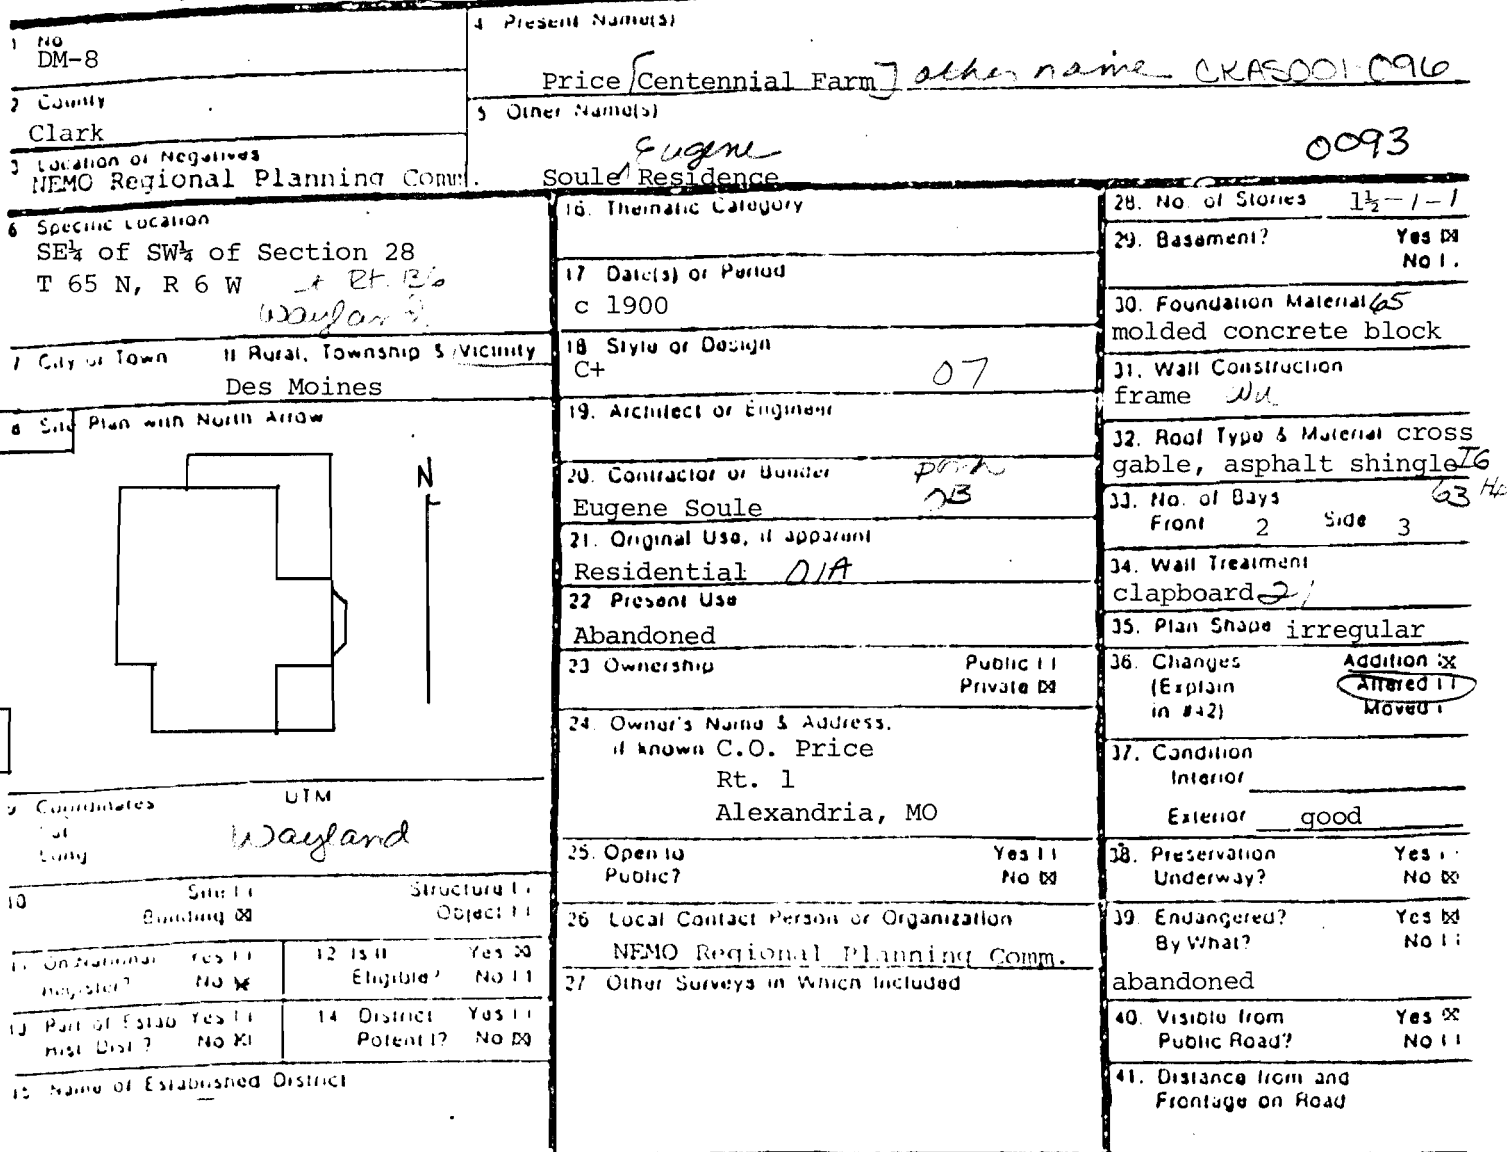 1 No
DM-8
2 County
Clark
3 Location of Negatives
NEMO Regional Planning Comm.
4 Present Name(s)
Price [Centennial Farm] other name CKAS001-096
5 Other Name(s)
Eugene
Soule Residence
0093
6 Specific Location
SE¼ of SW¼ of Section 28
T 65 N, R 6 W
Wayland
7 City or Town If Rural, Township & Vicinity
Des Moines
8 Site Plan with North Arrow
N
9 Coordinates UTM
Lat
Long
Wayland
10 Site [ ] Structure [ ]
Building [x] Object [ ]
11 On National Yes [ ]
Register? No [x]
12 Is It Yes [x]
Eligible? No [ ]
13 Part of Estab Yes [ ]
Hist. Dist.? No [x]
14 District Yes [ ]
Potent'l? No [x]
15 Name of Established District
16. Thematic Category
17 Date(s) or Period
c 1900
18 Style or Design
C+ 07
19. Architect or Engineer
20. Contractor or Builder
Eugene Soule
21. Original Use, if apparent
Residential 01A
22 Present Use
Abandoned
23 Ownership Public [ ]
Private [x]
24. Owner's Name & Address,
if known C.O. Price
Rt. 1
Alexandria, MO
25. Open to Yes [ ]
Public? No [x]
26 Local Contact Person or Organization
NEMO Regional Planning Comm.
27 Other Surveys in Which Included
28. No. of Stories 1½-1-1
29. Basement? Yes [x]
No [ ]
30. Foundation Material 65
molded concrete block
31. Wall Construction
frame
32. Roof Type & Material cross
gable, asphalt shingle IG
63
33. No. of Bays
Front 2 Side 3
34. Wall Treatment
clapboard 21
35. Plan Shape irregular
36. Changes Addition [x]
(Explain Altered [ ]
in #42) Moved [ ]
37. Condition
Interior
Exterior good
38. Preservation Yes [ ]
Underway? No [x]
39. Endangered? Yes [x]
By What? No [ ]
abandoned
40. Visible from Yes [x]
Public Road? No [ ]
41. Distance from and
Frontage on Road